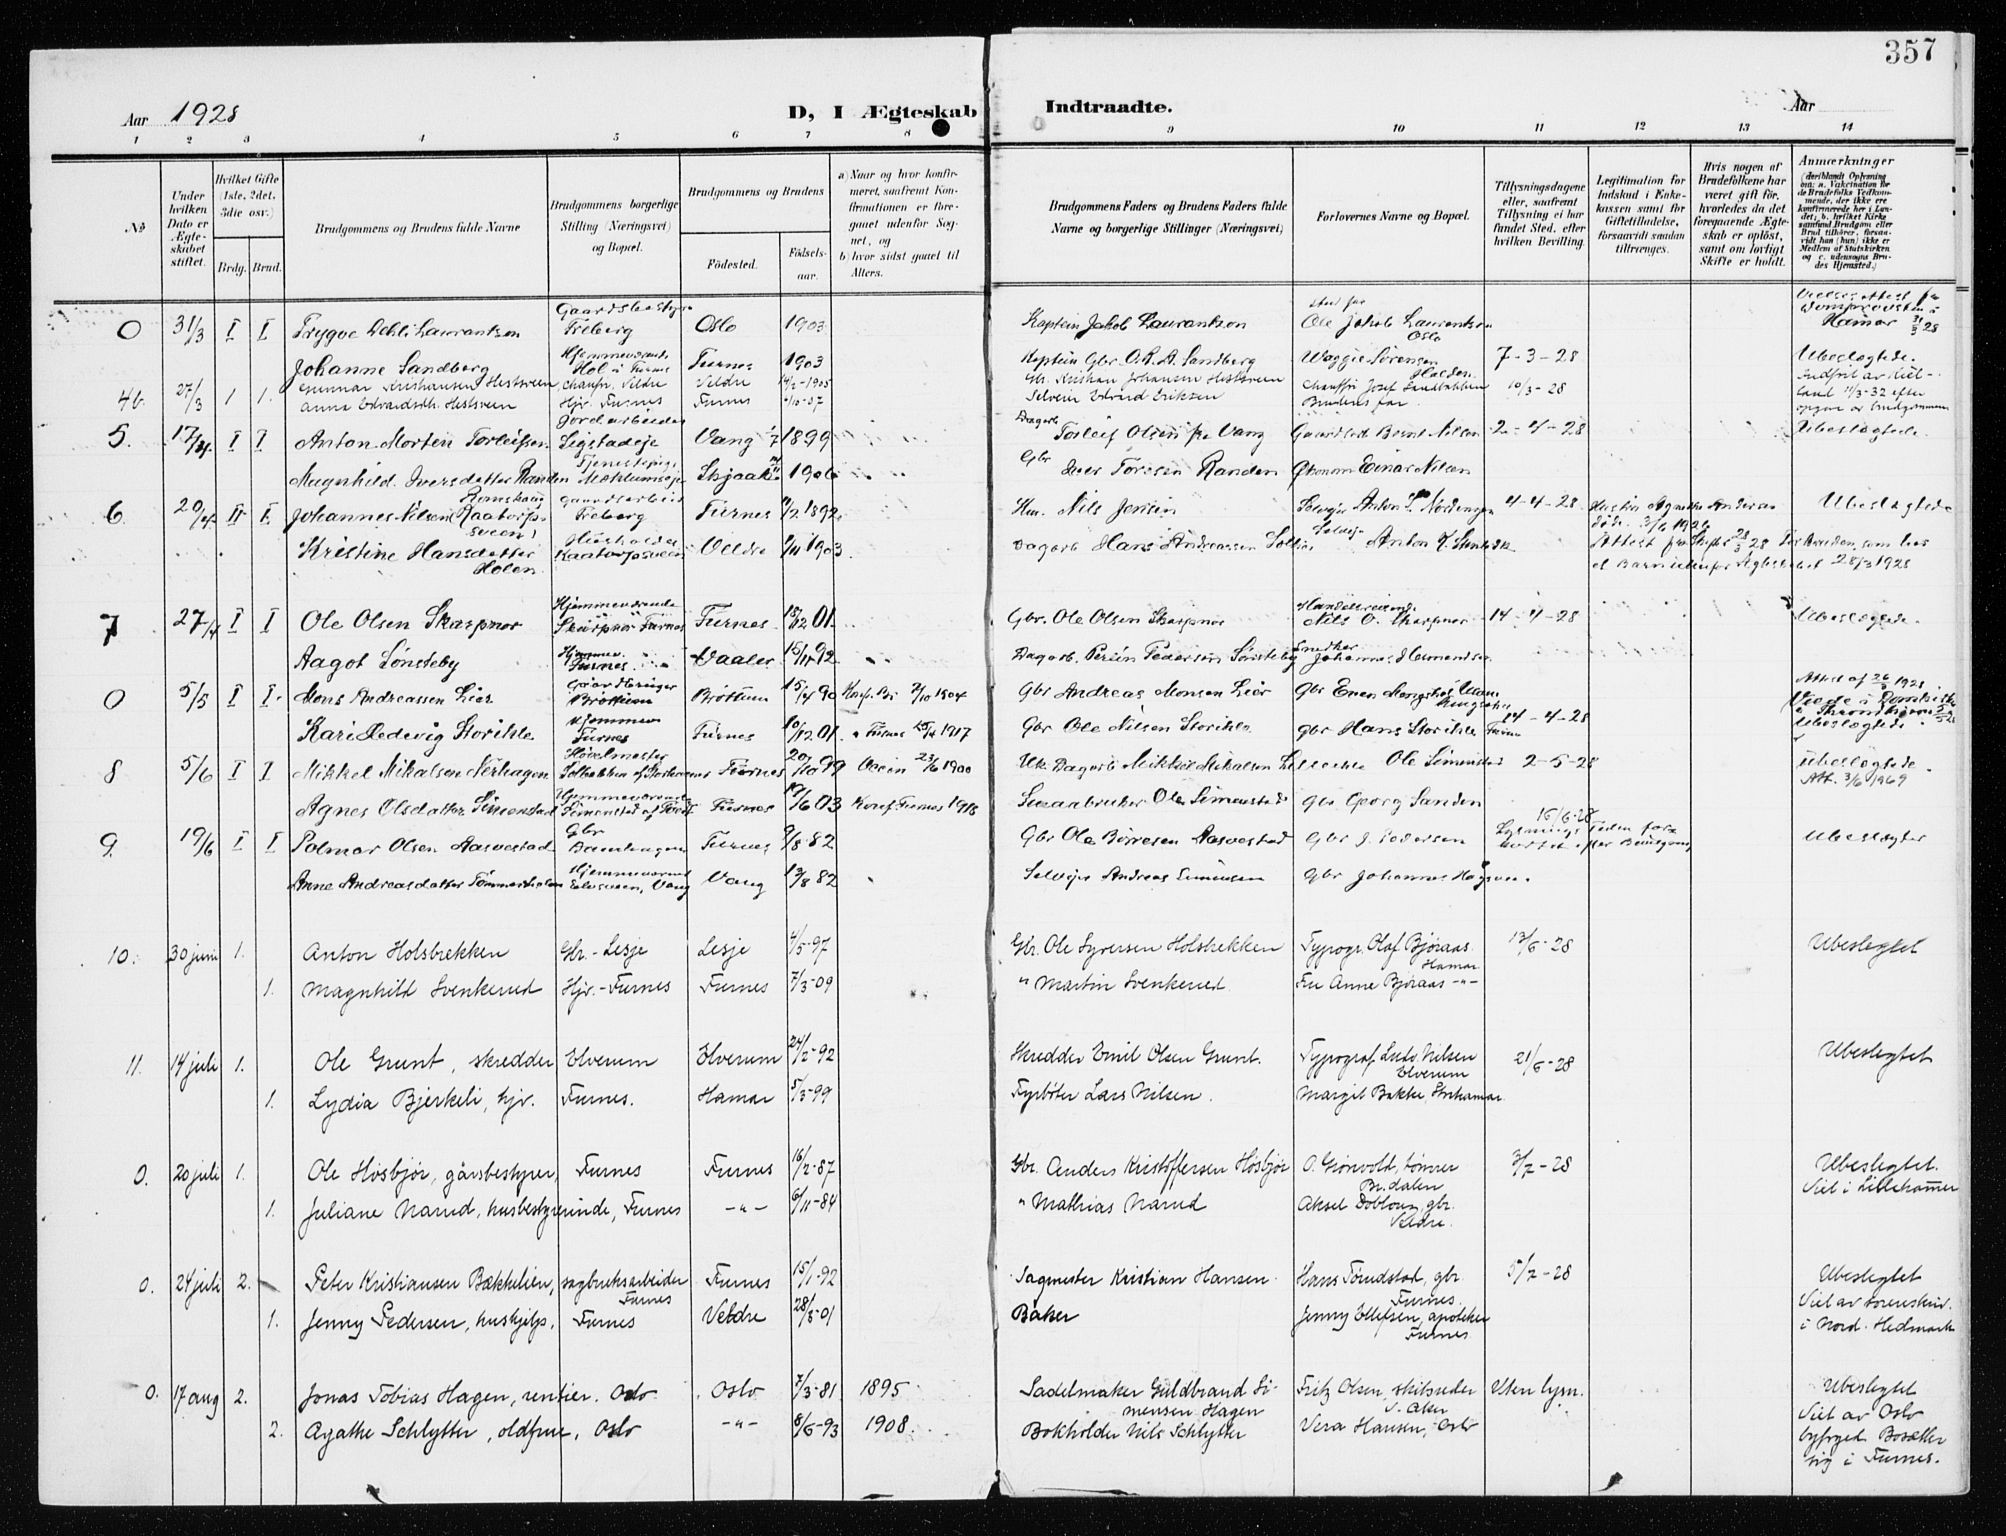 357
Aar 1928
D, I Ægteskab Indtraadte.
Aar
1 2 3 4 5 6 7 8 9 10 11 12 13 14
No
Under hvilken Dato er Ægteskabet stiftet.
Hvilket Gifte (1ste, 2det, 3die osv.)
Brdg. Brud.
Brudgommens og Brudens fulde Navne
Brudgommens borgerlige Stilling (Næringsvei) og Bopæl.
Brudgommens og Brudens
Fødested.
Fødsels-aar.
a) Naar og hvor konfirmeret, saafremt Konfirmationen er foregaaet udenfor Sognet, og
b) hvor sidst gaaet til Alters.
Brudgommens Faders og Brudens Faders fulde Navne og borgerlige Stillinger (Næringsvei)
Forlovernes Navne og Bopæl.
Tillysningsdagene eller, saafremt Tillysning ei har fundet Sted, efter hvilken Bevilling.
Legitimation for Indskud i Enkekassen samt for Giftetilladelse, forsaavidt saadan tiltrænges.
Hvis nogen af Brudefolkene har været gift før, hvorledes da det foregaaende Ægteskab er opløst, samt om lovligt Skifte er holdt.
Anmærkninger (deriblandt Oplysning om: a. Vakcination for de Brudefolks Vedkommende, der ikke ere konfirmerede her i Landet; b. hvilket Kirkesamfund Brudgom eller Brud tilhører, forsaavidt han (hun) ikke er Medlem af Statskirken og c. udensogns Brudes Hjemsted.)
0 31/3 I I Trygve Dehli Laurantzon Gaardsbestyrer Freberg Oslo 1903 Kaptein Jakob Laurantzon Ole Jakob Laurantzon Oslo Hamar 31/3 28
Johanne Sandberg Hjemmeværende Hol i Furnes Furnes 1903 Kaptein Gbr. O. R. A. Sandberg Waggie Sørensen Halden 7-3-28 Ubeslægtede.
4b. 27/3 1 1. Gunnar Kristiansen Hestsveen chauffr. Veldre Veldre 14/2-1905 Gbr. Kristian Johansen Hestsveen Chauffør Josef Sandbakken 10/3-28
Anna Edvardsdtr. Hestsveen Hjv. Furnes Furnes Selveier Edvard Eriksen Brudens far
5. 17/4. I I Anton Morten Torleifsen Jordarbeider Ligstadeje Vang 1899 Dagarb. Torleif Olsen fra Vang Gaardsbest Bernt Nilsen 2-4-28 Ubeslægtede.
Magnhild Iversdatter Randen Tjenestepige Skjaak 1906 Gbr Iver Toresen Randen Økonom Einar Nilsen
6. 20/4 II I. Johannes Nilsen Raatorpsveen Gaardsarbeid Freberg Furnes 1892 Hm. Nils Jensen Selveier Anton L. Nordengen 4-4-28 Hustru Agnethe Andersen døde 3/6 1926 Ubeslægtede
Kristine Hansdatter Holen Husholder Raatorpsveen Veldre 1903 Dagarb Hans Andreassen Anton K. 28/3 1928
7 27/4 I I Ole Olsen Skarpnor Hjemmeværende Skarpnor Furnes Furnes 18/12 01. Gbr. Ole Olsen Skarpnor Handelsreisende Nils O. Skarpnor 14-4-28 Ubeslægtede.
Aagot Lønsteby Hjemmev. Furnes Vaaler 15/11 92 Dagarb. Peder Pedersen Lønsteby Snedker Johannes Hermandsen
0 5/5 I I. Mons Andreassen Lier Gaardforpagter Brøttum Brøttum 15/4 90 Konf. Br. 2/10 1904 Gbr Andreas Monsen Lier Gbr Even Attest af 26/5 1928
Kari Hedevig Storihle Hjemmev Furnes Furnes 10/12 01. " Furnes 15/4 1917 Gbr Ole Nilsen Storihle gbr Hans Storihle Furnes 14-4-28 Ubeslægtede.
8 5/6 I I Mikkel Mikalsen Nerhagen Høvelmester Solbakken af Furnes 20/10 99 Veien 23/6 1900 Uk Dagarb Mikkel Mikalsen Ole Simenstad 2-5-28 Ubeslægtede. Att. 3/6 1969
Agnes Olsdatter Simenstad Hjemmeværende Simenstad af Furnes Furnes 19/6 03 Konf Furnes 1918 Smaabruker Ole Simenstad gbr Georg Sanden
9. 19/6 I I Palmar Olsen Aasvestad Gbr Furnes 9/8-82 Gbr Ole Børresen Aasvestad Gbr J. Pedersen 15/6-28 Lysningstiden forkortet efter Ubeslægter
Anne Andreasdatter Tømmerholen Hjemmeværende Elvsveen, Vang Vang 13/8 82 Selveier Andreas Simensen gbr Johannes
10. 30 juni 1. Anton Holsbrekken Gbr.-Lesje Lesje 4/5-97 Gbr. Ole Syversen Holsbrekken Typogr. Olaf Bjøraas Hamar 13/6-28 Ubeslegtet
1. Magnhild Svenkerud Hjv.-Furnes Furnes 7/3-09 " Martin Svenkerud. Fru Anne Bjøraas -"-
11. 14 juli 1. Ole Grunt, skredder Elverum Elverum 24/2-92 Skredder Emil Olsen Grunt. Typograf Ludv. Nilsen Elverum 21/6-28 Ubeslegtet
1. Lydia Bjerkeli, hjv. Furnes. Hamar 5/3-99 Fyrbøter Lars Nilsen. Margit Bakke, Storhamar
0. 20 juli 1. Ole Hosbjør, gårsbestyrer, Furnes Furnes 16/2-87 Gbr. Anders Kristoffersen Hosbjør O. Grønvold, tømrer Br. dalen 3/7-28 Ubeslegtet. Viet i Lillehammer
1. Juliane Narud, husbestyrerinde, Furnes -"- 6/11-84 " Mathias Narud Aksel Dobloug, gbr. Veldre.
0. 24 juli 2. Peter Kristiansen Bækkelien, sagbruksarbeider Furnes Furnes 15/1-92 Sagmester Kristian Hansen. Hans Tømdstad, gbr Furnes. 5/7-28 Ubeslegtet Viet av sorenskriv. i Nord-Hedmark
1. Jenny Pedersen, hushjelp, Furnes Veldre 28/8-01 Baker Jenny Ellefsen, apoteker Furnes
0. 17 aug 2. Jonas Tobias Hagen, rentier. Oslo Oslo 7/3-81 1895 Sadelmaker Guldbrand Simensen Hagen Fritz Olsen, skibsreder V. Aker Uten lysn. Ubeslegtet Viet av Oslo byfoged. Bosætter sig i Furnes.
2. Agathe Schlytter, oldfrue, Oslo -"- 8/6-93 1908. Bokholder Nils Schlytter Vera Hansen, Oslo